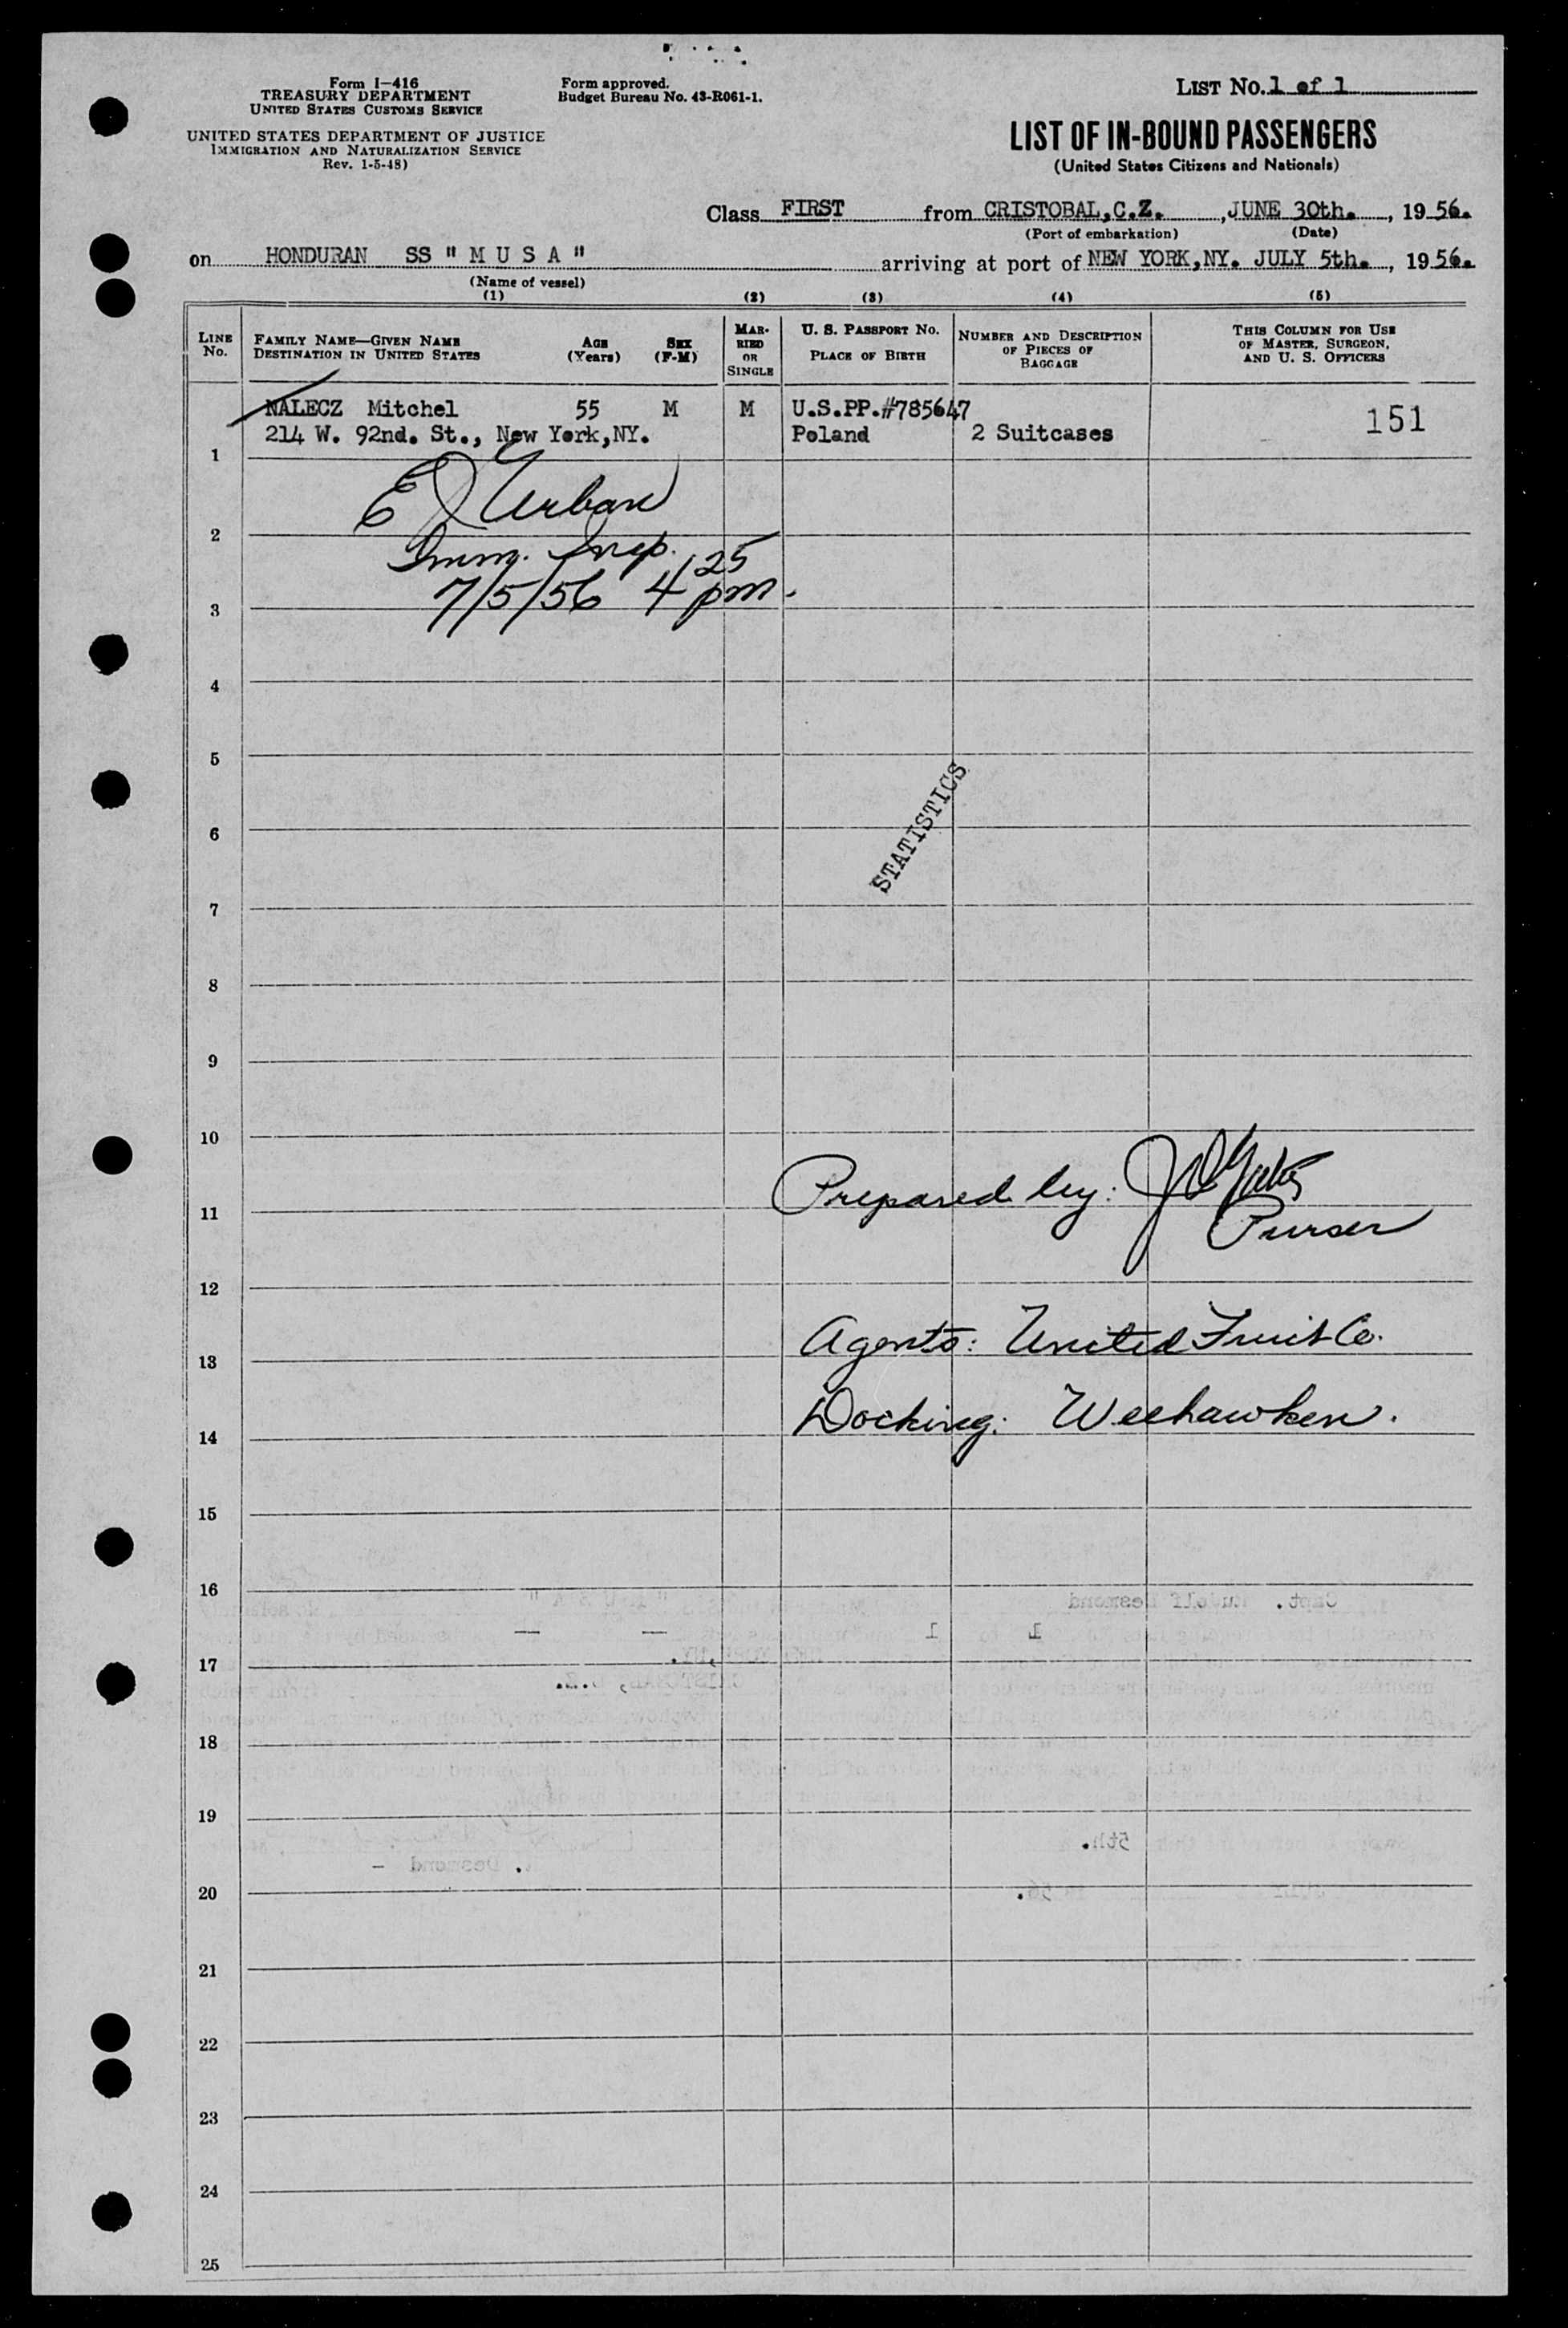 Form I-416
TREASURY DEPARTMENT
UNITED STATES CUSTOMS SERVICE
UNITED STATES DEPARTMENT OF JUSTICE
IMMIGRATION AND NATURALIZATION SERVICE
Rev. 1-5-48)
Form approved.
Budget Bureau No. 43-R061-1.
LIST No. 1 of 1
LIST OF IN-BOUND PASSENGERS
(United States Citizens and Nationals)
Class FIRST from CRISTOBAL,C.Z. , JUNE 30th. , 1956.
(Port of embarkation) (Date)
on HONDURAN SS " M U S A " arriving at port of NEW YORK,NY. JULY 5th. , 1956.
(Name of vessel)
(1) (2) (3) (4) (5)
LINE No. FAMILY NAME—GIVEN NAME DESTINATION IN UNITED STATES AGE (Years) SEX (F-M) MARRIED OR SINGLE U. S. PASSPORT NO. PLACE OF BIRTH NUMBER AND DESCRIPTION OF PIECES OF BAGGAGE THIS COLUMN FOR USE OF MASTER, SURGEON, AND U. S. OFFICERS
NALECZ Mitchel 55 M M U.S.PP.#785647
214 W. 92nd. St., New York,NY. Poland 2 Suitcases 151
1
E J Urban
2
Imm. Insp.
7/5/56 4 25 pm.
3
4
5
STATISTICS
6
7
8
9
10
Prepared by:
11
Purser
12
Agents: United Fruit Co.
13
Docking: Weehawken.
14
15
16
Capt. Rudolf Desmond
1 1
NEW YORK,NY.
17
CRISTOBAL, C.Z.
18
19
5th.
. Desmond -
20
1956.
21
22
23
24
25